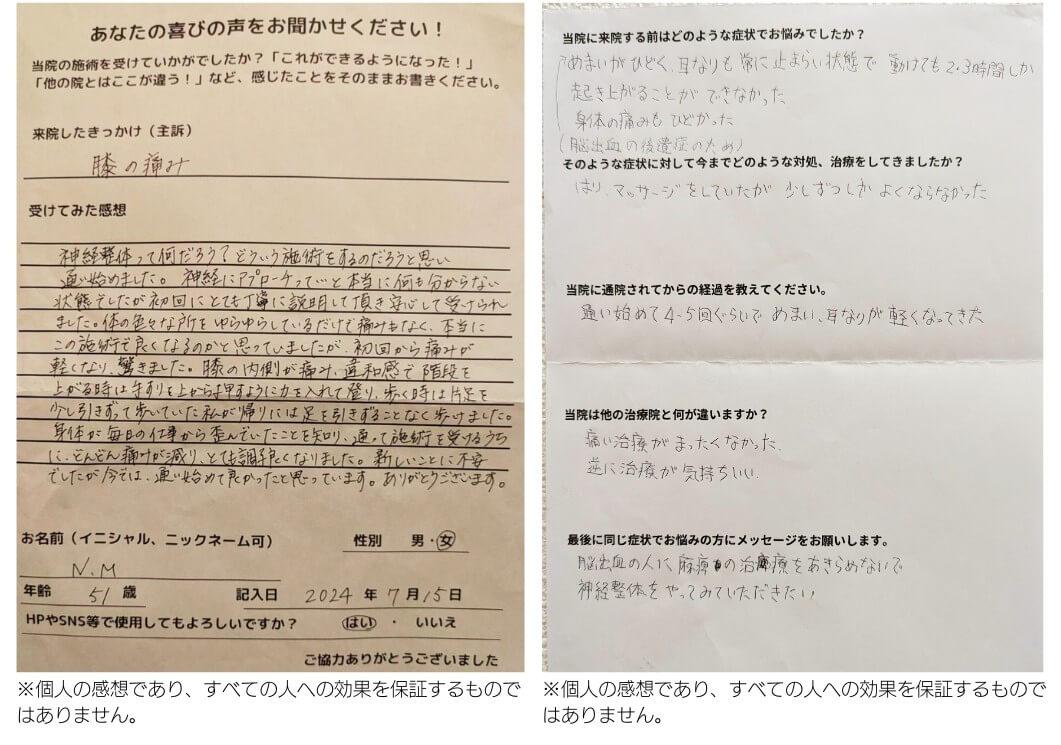 あなたの喜びの声をお聞かせください！
当院の施術を受けていかがでしたか？「これができるようになった！」
「他の院とはここが違う！」など、感じたことをそのままお書きください。
来院したきっかけ（主訴）
膝の痛み
受けてみた感想
神経整体って何だろう？どういう施術をするのだろうと思い
通い始めました。神経にアプローチっていっても本当に何も分からない
状態でしたが初回にとても丁寧に説明して頂き安心して受けられ
ました。体の色々な所をゆらゆらしているだけで痛みもなく、本当に
この施術で良くなるのかと思っていましたが、初回から痛みが
軽くなり、驚きました。膝の内側が痛み、違和感で階段を
上がる時は手すりを上から押すように力を入れて登り、歩く時は片足を
少し引きずって歩いていた私が帰りには足を引きずることなく歩けました。
身体が毎日の仕事から歪んでいたことを知り、通って施術を受けるうち
に、どんどん痛みが減り、とても調子良くなりました。新しいことに不安
でしたが今では、通い始めて良かったと思っています。ありがとうございます。
お名前（イニシャル、ニックネーム可）
性別 男・女
N.M
年齢 51 歳 記入日 2024 年 7 月 15 日
HPやSNS等で使用してもよろしいですか？ はい ・ いいえ
ご協力ありがとうございました
※個人の感想であり、すべての人への効果を保証するもので
はありません。
当院に来院する前はどのような症状でお悩みでしたか？
めまいがひどく、耳なりも常に止まらい状態で 動けても2.3時間しか
起き上がることができなかった
身体の痛みもひどかった
(脳出血の後遺症のため)
そのような症状に対して今までどのような対処、治療をしてきましたか？
はり、マッサージをしていたが 少しずつしか よくならなかった
当院に通院されてからの経過を教えてください。
通い始めて4-5回ぐらいで めまい、耳なりが 軽くなってきた
当院は他の治療院と何が違いますか？
痛い治療がまったくなかった、
逆に治療が気持ちいい.
最後に同じ症状でお悩みの方にメッセージをお願いします。
脳出血の人に麻痺の治療をあきらめないで
神経整体をやってみていただきたい
※個人の感想であり、すべての人への効果を保証するもので
はありません。